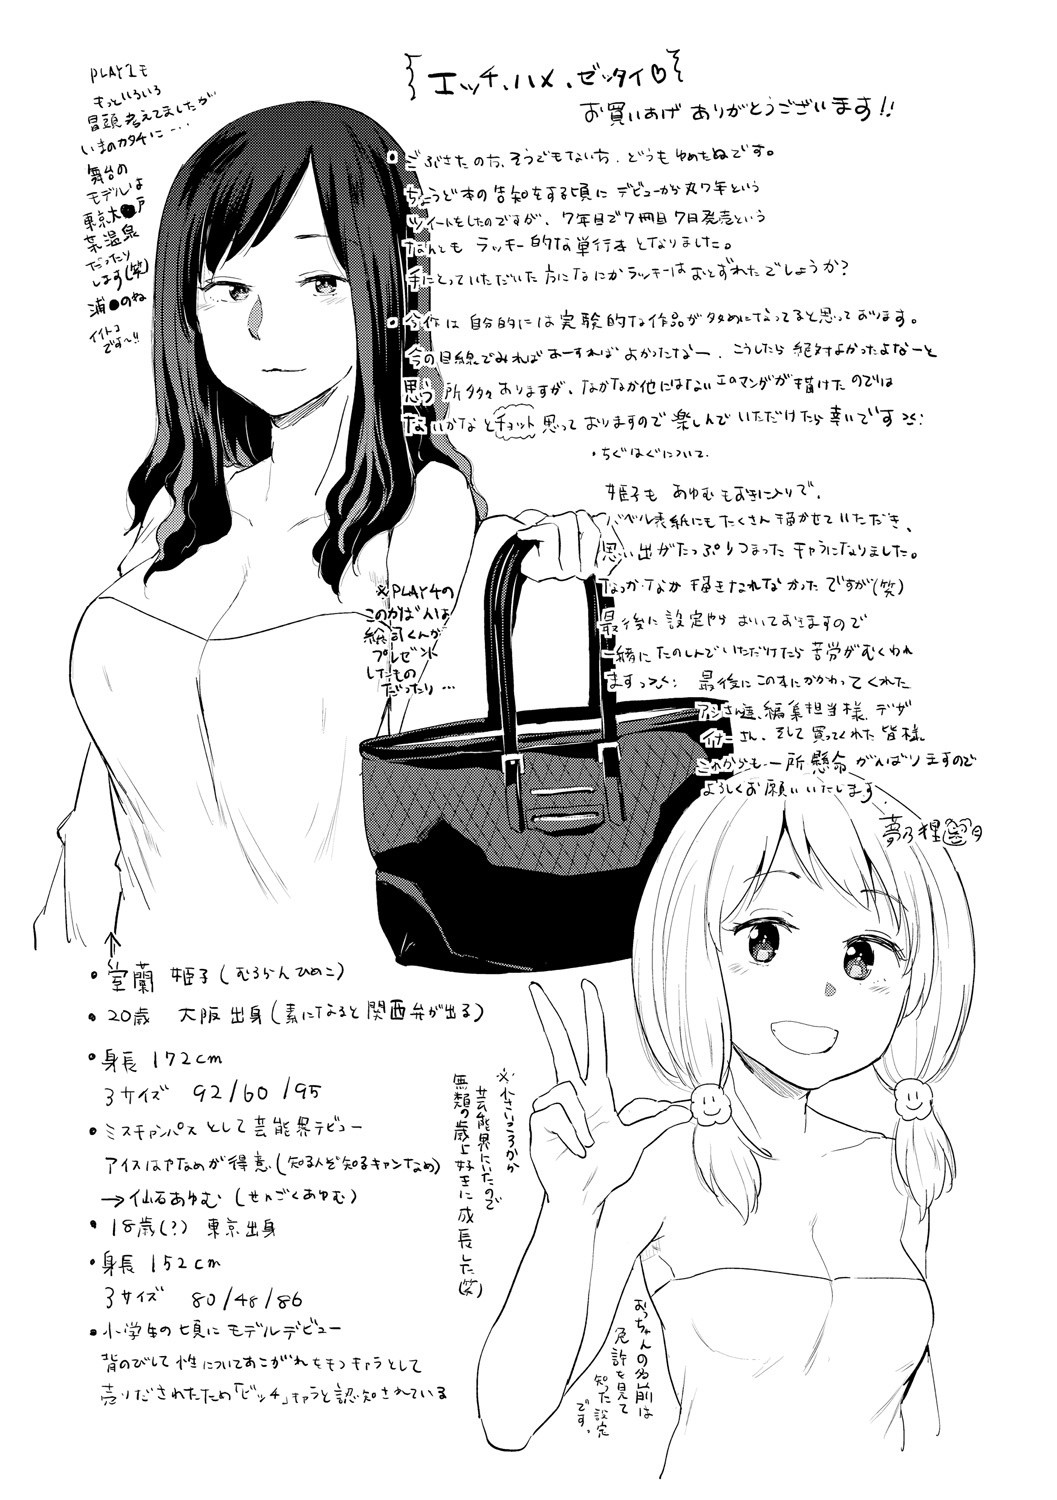 PLAY1も
もっといろいろ
冒頭考えてましたが
いまのカタチに…
舞台の
モデルは
東京大●戸
某温泉
だったり
します(笑)
浦●のね
イイトコ
です〜!!
エッチ、ハメ、ゼッタイ♡
お買いあげありがとうございます!!
ごぶさたの方、そうでもない方、どうもゆめたぬです。
ちょうど本の告知をする頃にデビューから丸7年という
ツイートをしたのですが、7年目で7冊目7日発売という
なんともラッキー的な単行本となりました。
手にとっていただいた方になにかラッキーはおとずれたでしょうか?
今作は自分的には実験的な作品が多めになってると思っております。
今の目線でみればあーすればよかったなー、こうしたら絶対よかったよなーと
思う所多々ありますが、なかなか他にはないエロマンガが描けたのでは
ないかなとチョット思っておりますので楽しんでいただけたら幸いです
・ちぐはぐについて、
姫子もあゆむもお気に入りで、
バベル表紙にもたくさん描かせていただき、
思い出がたっぷりつまったキャラになりました。
なっかなか描きなれなかったですが(笑)
最後に設定やらおいておきますので
一緒にたのしんでいただけたら苦労がむくわれ
ますっ
最後にこの本にかかわってくれた
アシさん達、編集担当様、デザ
イナーさん、そして買ってくれた皆様、
これからも一所懸命がんばりますので
よろしくお願いいたします。
夢乃狸
※PLAY4の
このかばんは
プレゼント
したもの
だったり…
・室蘭 姫子(むろらんひめこ)
・20歳 大阪出身(素になると関西弁が出る)
・身長 172cm
3サイズ 92/60/95
・ミスキャンパスとして芸能界デビュー
アイスはやなめが得意(知る人ぞ知るキャンなめ)
→仙石あゆむ(せんごくあゆむ)
・18歳(?) 東京出身
・身長 152cm
3サイズ 80/48/86
・小学生の頃にモデルデビュー
背のびして性についてあこがれをもつキャラとして
売りだされたため「ビッチ」キャラと認知されている
※小さいころから
芸能界にいたので
無類の歳上好きに成長した(笑)
おっちゃんの名前は
免許を見て
知った設定
です。